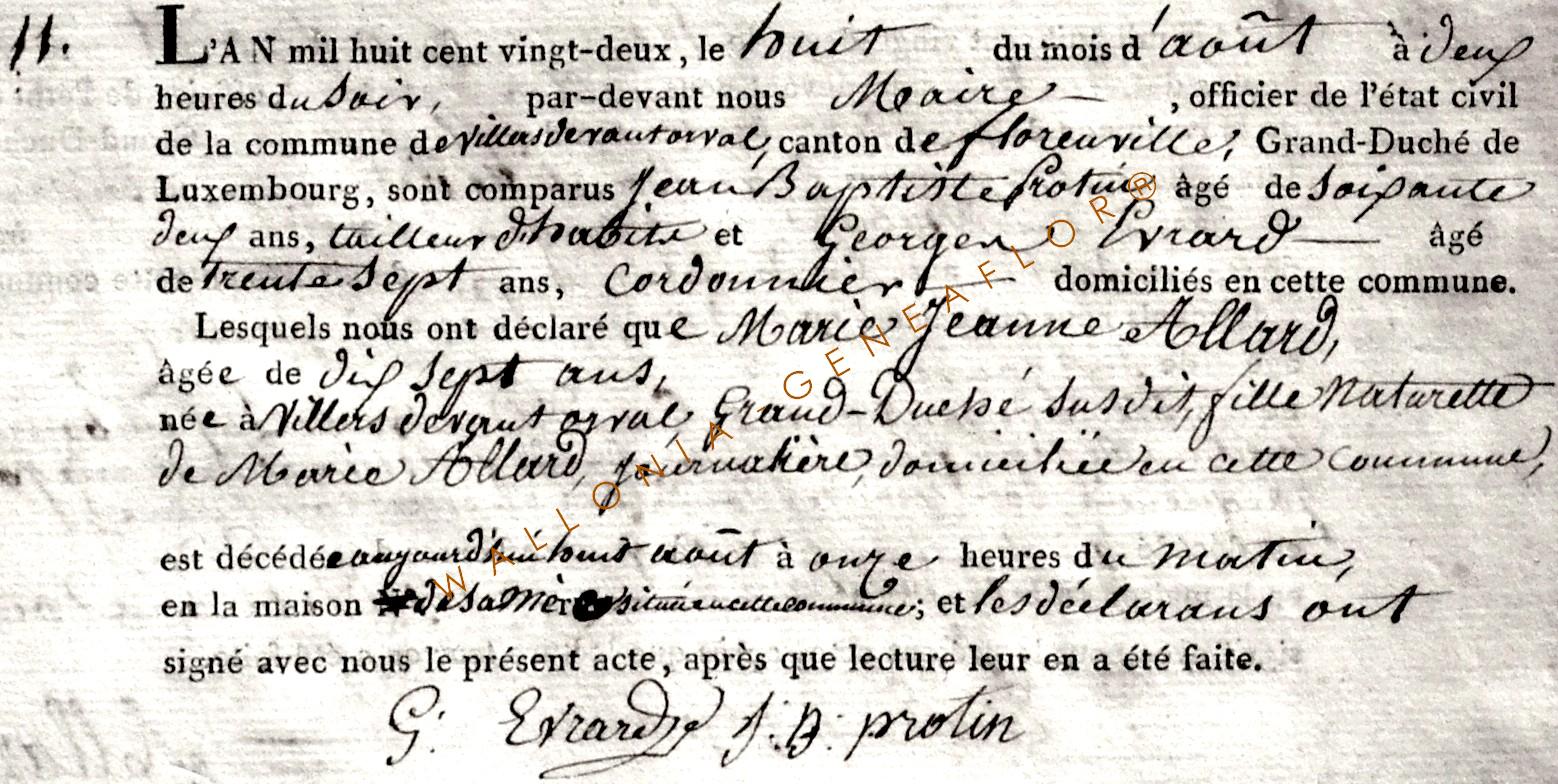 11. L'AN mil huit cent vingt-deux, le huit du mois d'août à deux
heures du Soir, par-devant nous Maire , officier de l'état civil
de la commune de villers devant orval, canton de florenville, Grand-Duché de
Luxembourg, sont comparus Jean Baptiste Protin âgé de soixante
deux ans, tailleur d'habits et Georges Evrard âgé
de trente sept ans, Cordonnier domiciliés en cette commune.
Lesquels nous ont déclaré que Marie Jeanne Allard,
âgée de dix sept ans,
née à Villers devant orval, Grand-Duché susdit, fille Naturelle
de Marie Allard, journalière, domiciliée en cette Commune,
est décédée aujourd'hui huit août à onze heures du matin,
en la maison de sa Mère située en cette commune; et les déclarans ont
signé avec nous le présent acte, après que lecture leur en a été faite.
G. Evrard J. B. protin
WALLONIA GENEAFLOR®